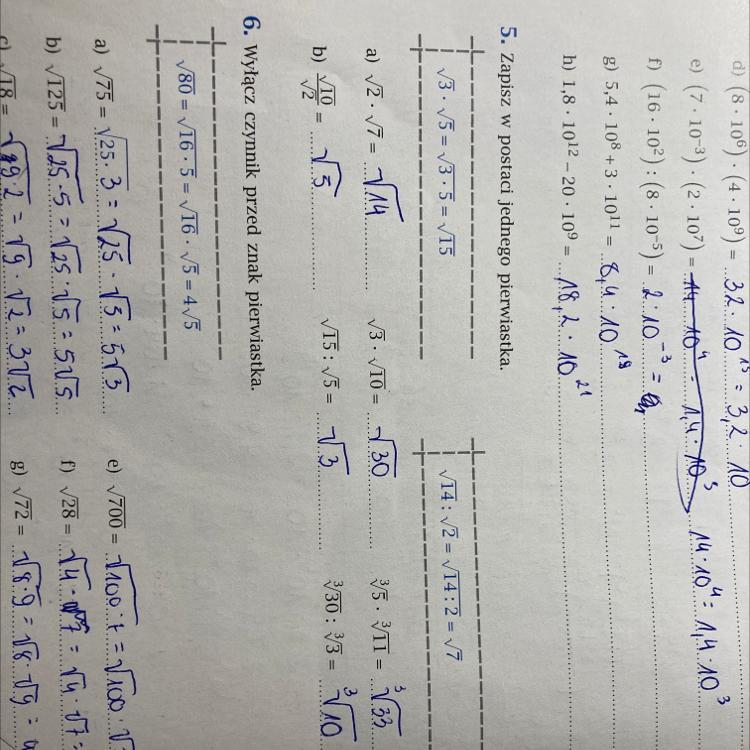 d) (8 · 10⁶) · (4 · 10⁹) = 32 · 10¹⁵ = 3,2 · 10
e) (7 · 10⁻³) · (2 · 10⁷) = 14 · 10⁴ = 1,4 · 10³ 14 · 10⁴ = 1,4 · 10³
f) (16 · 10²) : (8 · 10⁻⁵) = 2 · 10⁻³ =
g) 5,4 · 10⁸ + 3 · 10¹¹ = 8,4 · 10¹⁹
h) 1,8 · 10¹² – 20 · 10⁹ = 18,2 · 10²¹
5. Zapisz w postaci jednego pierwiastka.
√3 · √5 = √3 · 5 = √15 √14 : √2 = √14 : 2 = √7
a) √2 · √7 = √14 √3 · √10 = √30 ³√5 · ³√11 = ³√33
b) √10/√2 = √5 √15 : √5 = √3 ³√30 : ³√3 = ³√10
6. Wyłącz czynnik przed znak pierwiastka.
√80 = √16 · 5 = √16 · √5 = 4√5
a) √75 = √25 · 3 = √25 · √3 = 5√3 e) √700 = √100 · 7 = √100 · √
b) √125 = √25 · 5 = √25 · √5 = 5√5 f) √28 = √4 · 7 = √4 · √7 =
c) √18 = √9 · 2 = √9 · √2 = 3√2 g) √72 = √8 · 9 = √8 · √9 =